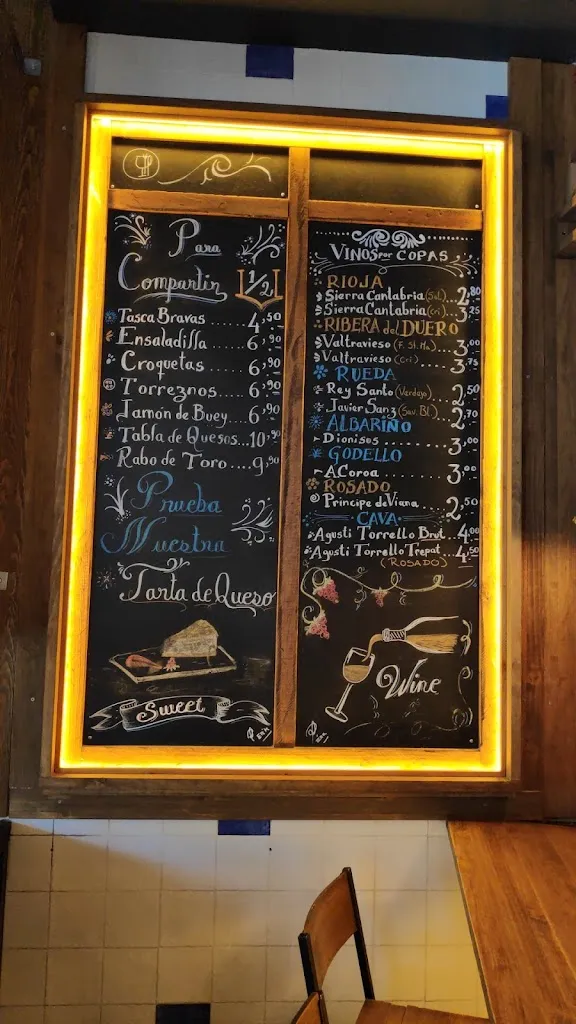 Para
Compartir 1/2
Tasca Bravas .... 4,50
Ensaladilla .... 6,90
Croquetas .... 6,90
Torreznos .... 6,90
Jamon de Buey.... 6,90
Tabla de Quesos...10,90
Rabo de Toro.... 9,90
Prueba
Nuestra
Tarta de Queso
Sweet
VINOS por COPAS
RIOJA
Sierra Cantabria (Sel.)...2,80
Sierra Cantabria (cri.)..3,25
RIBERA del DUERO
Valtravieso (F. St. Ma.)...3,00
Valtravieso (Cri.) 3,75
RUEDA
Rey Santo (Verdejo).. 2,50
Javier Sanz (Sav. Bl.).. 2,70
ALBARIÑO
Dionisos ...... 3,00
GODELLO
A Coroa ...... 3,00
ROSADO
Principe de Viana.... 2,50
CAVA
Agusti Torrello Brut..4,00
Agusti Torrello Trepat..4,50
(ROSADO)
Wine